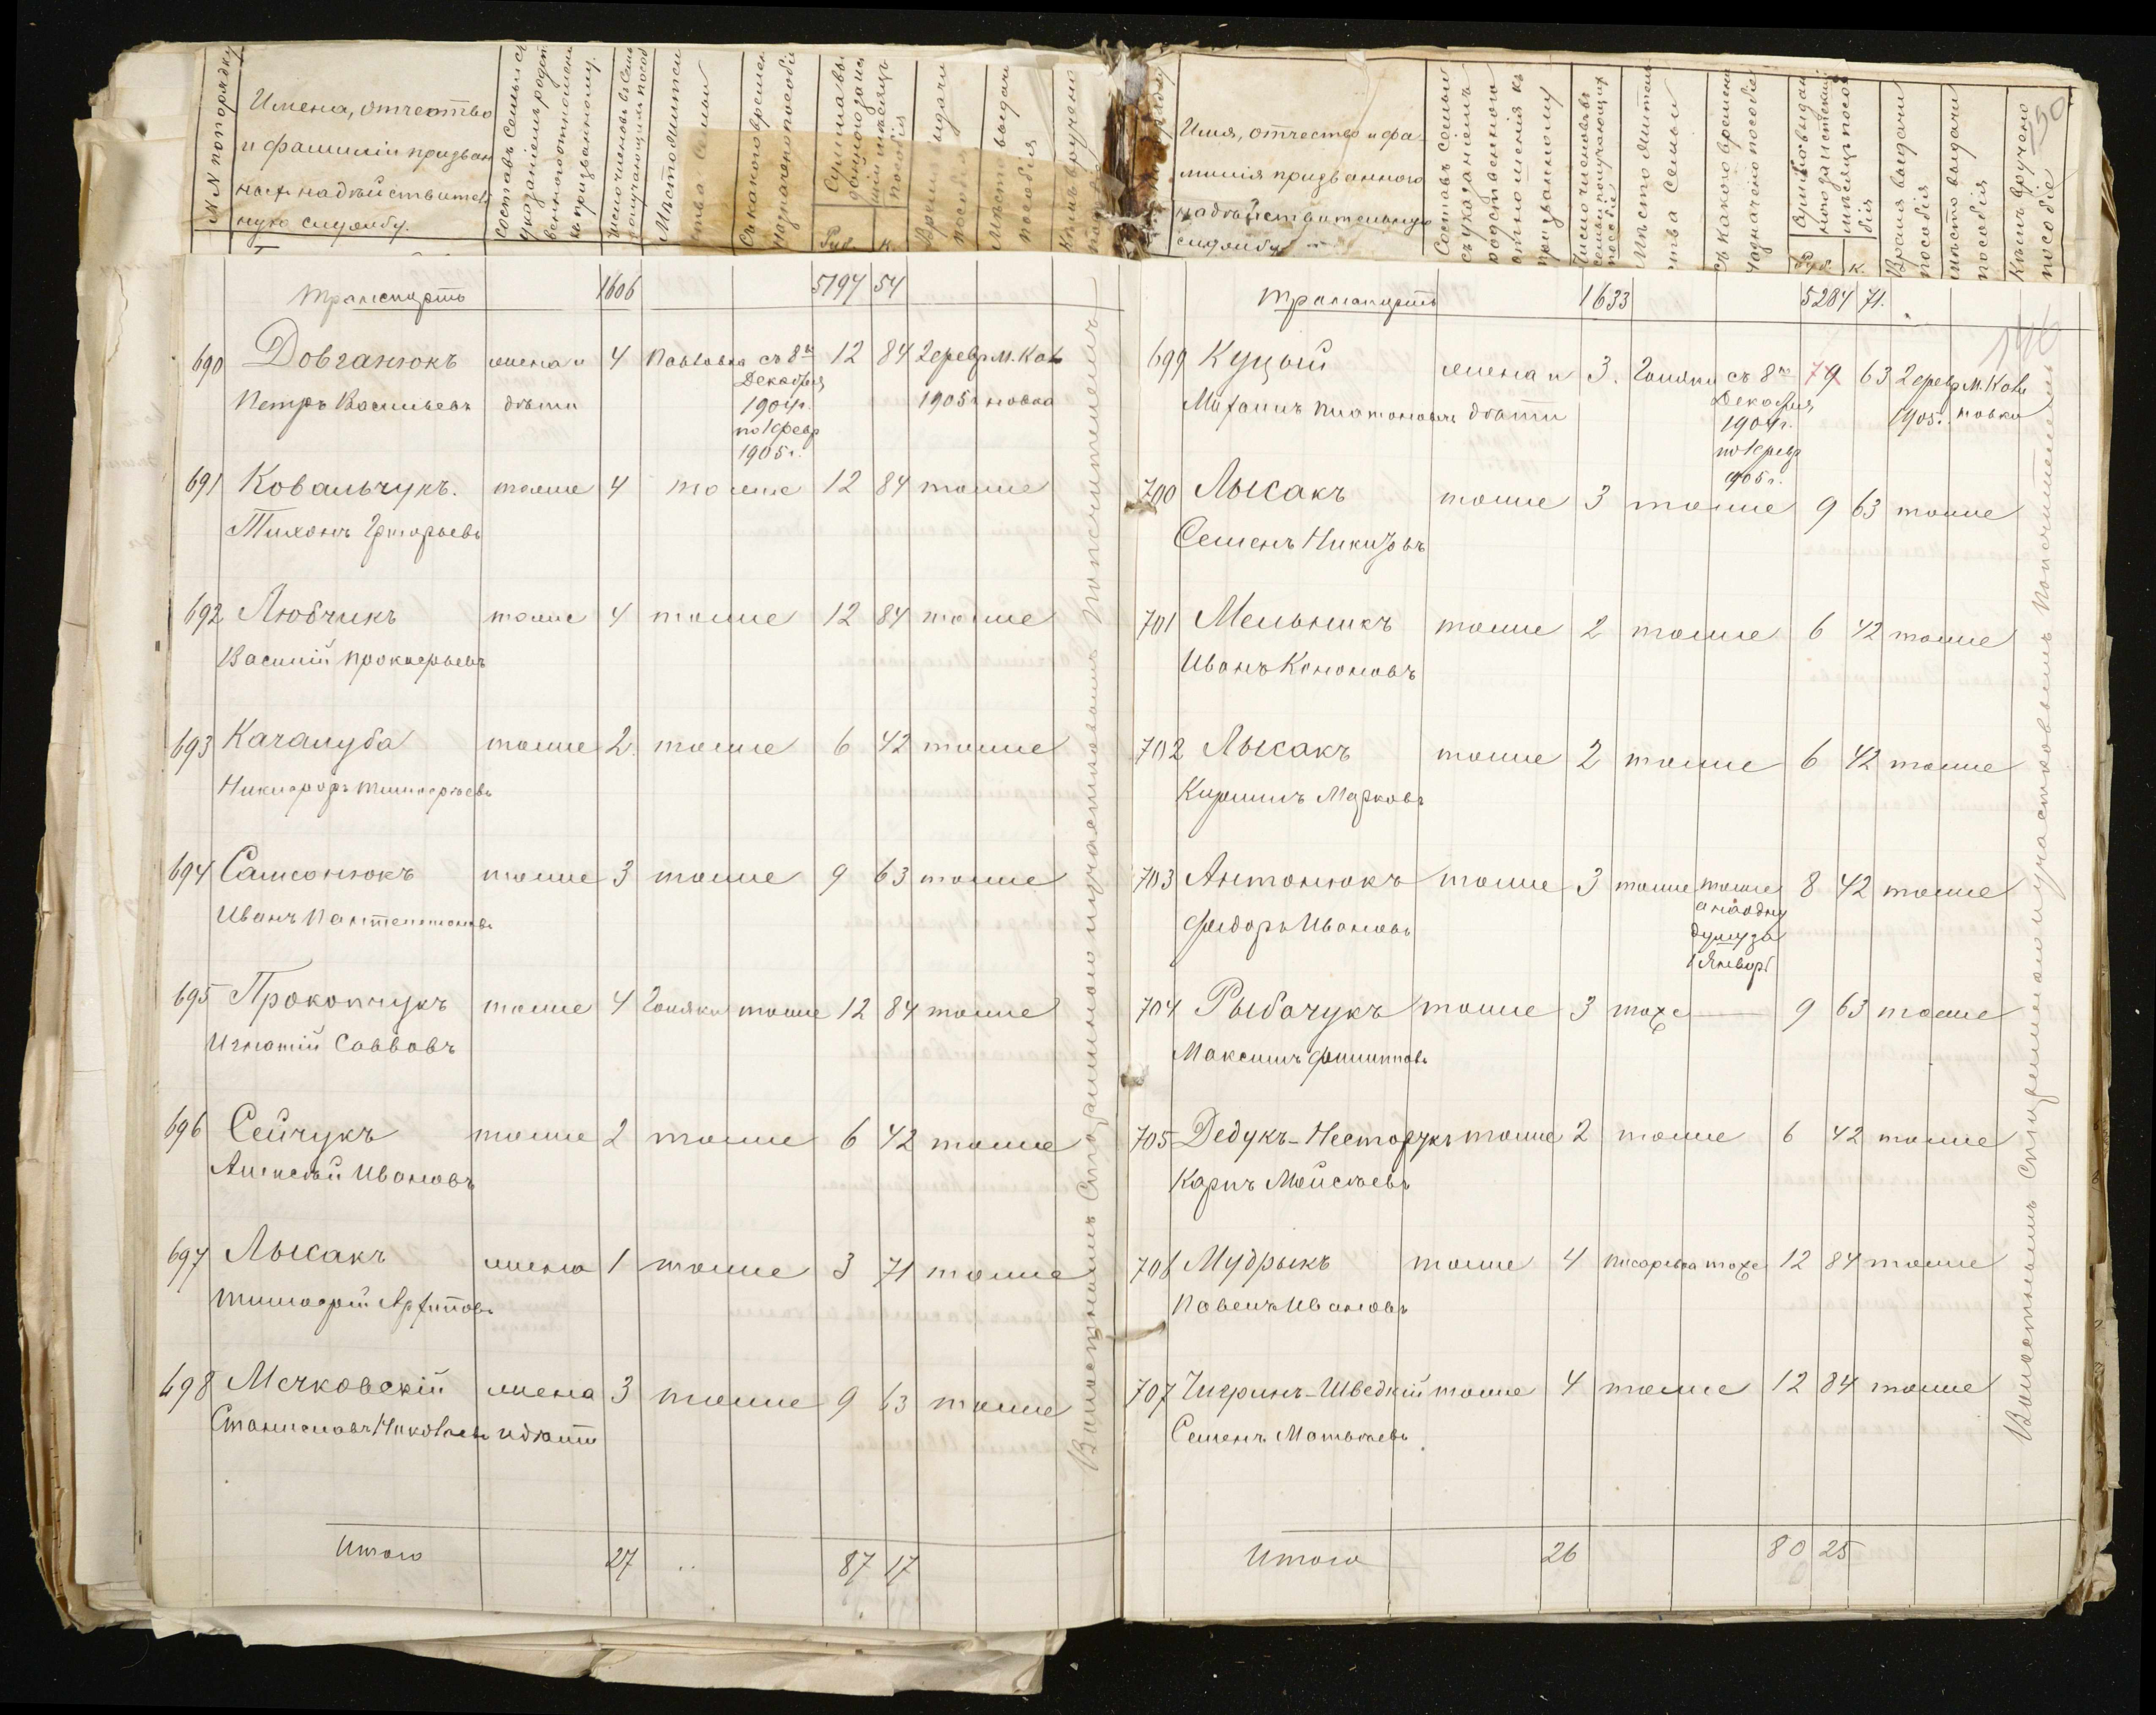 №№ по порядку
Имена, отчество
и фамиліи призван
на дѣйствитель
ную службу.
Составъ семьи съ
указаніемъ родст
веннаго отношенія
къ призванному.
Число членовъ въ семь
получающихъ пособ
Мѣсто житель
ства семьи
Съ какого времени
назначено пособіе
Сумма вы
даннаго за ис
шій мѣсяцъ
пособія
Руб. к.
Время выдачи
пособія
Мѣсто выдачи
пособія
Кѣмъ вручено
транспортъ 1606 5197 54
690 Довганюкъ жена и 4 Павловка съ 8го 12 84 2 февр. м. Кал
Петръ Васильевъ дѣти Декабря 1905г. новка
1904г.
по 1 февр
1905г.
691 Ковальчукъ. тоже 4 тоже 12 84 тоже
Тихонъ Григорьевъ
692 Любчикъ тоже 4 тоже 12 84 тоже
Василій Прокофьевъ
693 Качалуба тоже 2. тоже 6 42 тоже
Никифоръ Тимофеевъ
694 Самсонюкъ тоже 3 тоже 9 63 тоже
Иванъ Пантелимоновъ
695 Прокопчукъ тоже 4 Голяки тоже 12 84 тоже
Игнатій Саввовъ
696 Сейчукъ тоже 2 тоже 6 42 тоже
Алексѣй Ивановъ
697 Лысакъ жена 1 тоже 3 71 тоже
Тимофей Архиповъ
698 Мечковскій жена 3 тоже 9 63 тоже
Станиславъ Николаевъ и дѣти
Волостнымъ Старшиною и участковымъ Попечителемъ
Итого 27 87 17
Имя, отчество и фа
милія призваннаго
на дѣйствительную
службу
Составъ семьи
съ указаніемъ
родственнаго
отношенія къ
призванному
Число членовъ въ
семьи получающихъ
пособіе
Мѣсто житель
ства семьи
Съ какого времени
назначено пособіе
Сумма выдан
наго за истекшій
мѣсяцъ пособ
бія
Руб. к.
Время выдачи
пособія
Мѣсто выдачи
пособія
Кѣмъ вручено
пособіе
транспортъ 1633 5284 71.
699 Куцый жена и 3. Голяки съ 8го 9 63 2 февр м. Кали
Михаилъ Платоновъ дѣти Декабря 1905г. новка
1904г.
по 1 февр
1905г.
700 Лысакъ тоже 3 тоже 9 63 тоже
Семенъ Никитовъ
701 Мельникъ тоже 2 тоже 6 42 тоже
Иванъ Кононовъ
702 Лысакъ тоже 2 тоже 6 42 тоже
Кирилъ Марковъ
703 Антонюкъ тоже 3 тоже тоже 8 42 тоже
Федоръ Ивановъ а на одну
душу за
1 Январь
704 Рыбачукъ тоже 3 тоже 9 63 тоже
Максимъ Филиповъ
705 Дедукъ-Несторукъ тоже 2 тоже 6 42 тоже
Карпъ Мойсѣевъ
706 Мудрыкъ тоже 4 Писаревка тоже 12 84 тоже
Павелъ Ивановъ
707 Чигринъ-Шведкій тоже 4 тоже 12 84 тоже
Семенъ Матвѣевъ
Волостнымъ Старшиною и участковымъ Попечителемъ
Итого 26 80 25